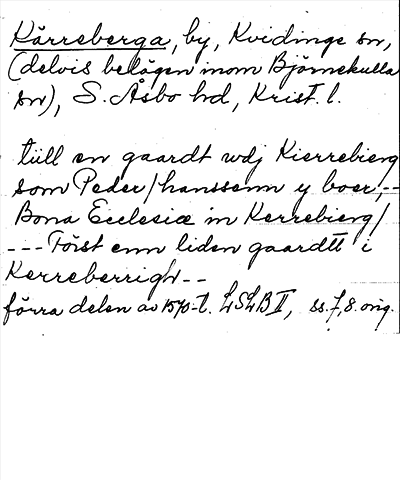 Kärreberga, by, Kvidinge sn,
(delvis belägen inom Björnekulla
sn), S. Åsbo hd, Krist. l.
till en gaardt wdj Kierrebierg
som Peder/hanssenn y boer,--
Bona Ecclesiæ in Kerrebierg/
---Först enn liden gaardtt i
Kerreberrigh--
förra delen av 1570-t. LSLB II, ss. 7, 8. orig.